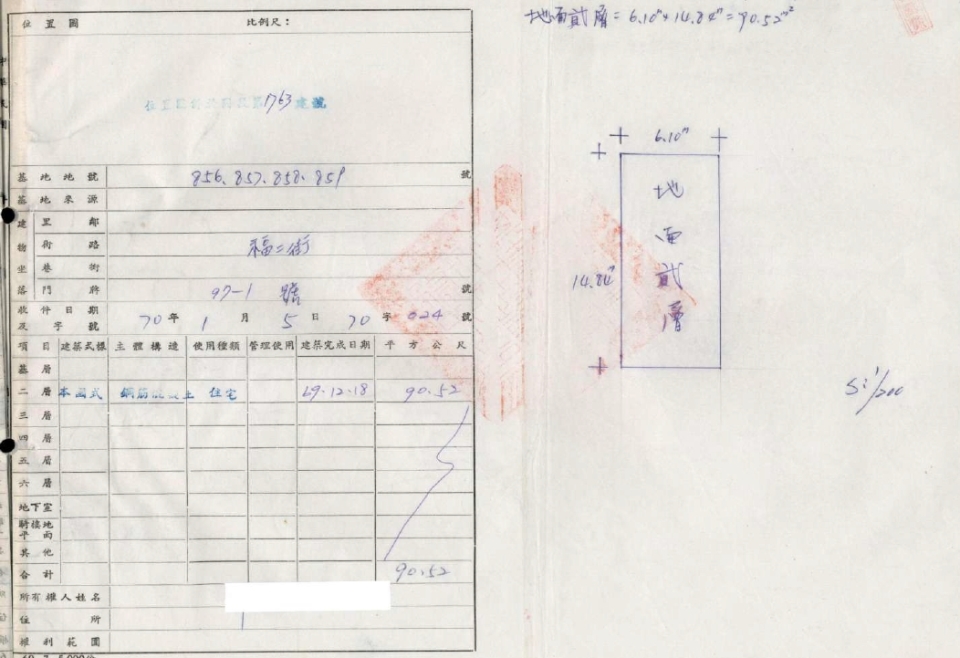 位置圖 比例尺:
1763建號
基地地號 856、857、858、859 號
基地來源
建物坐落
里鄰
街路 福二街
巷衖
門牌 97-1 號 號
收件日期及字號 70年1月5日70字024號
項目 建築式樣 主體構造 使用種類 管理使用 建築完成日期 平方公尺
基層
二層 本國式 鋼筋混凝土 住宅 69.12.18 90.52
三層
四層
五層
六層
地下室
騎樓地平面
其他
合計 90.52
所有權人姓名
住所
權利範圍
地面貳層=6.10ᵐ×14.84ᵐ=90.52m²
6.10ᵐ
14.84ᵐ
地面貳層
S:1/200